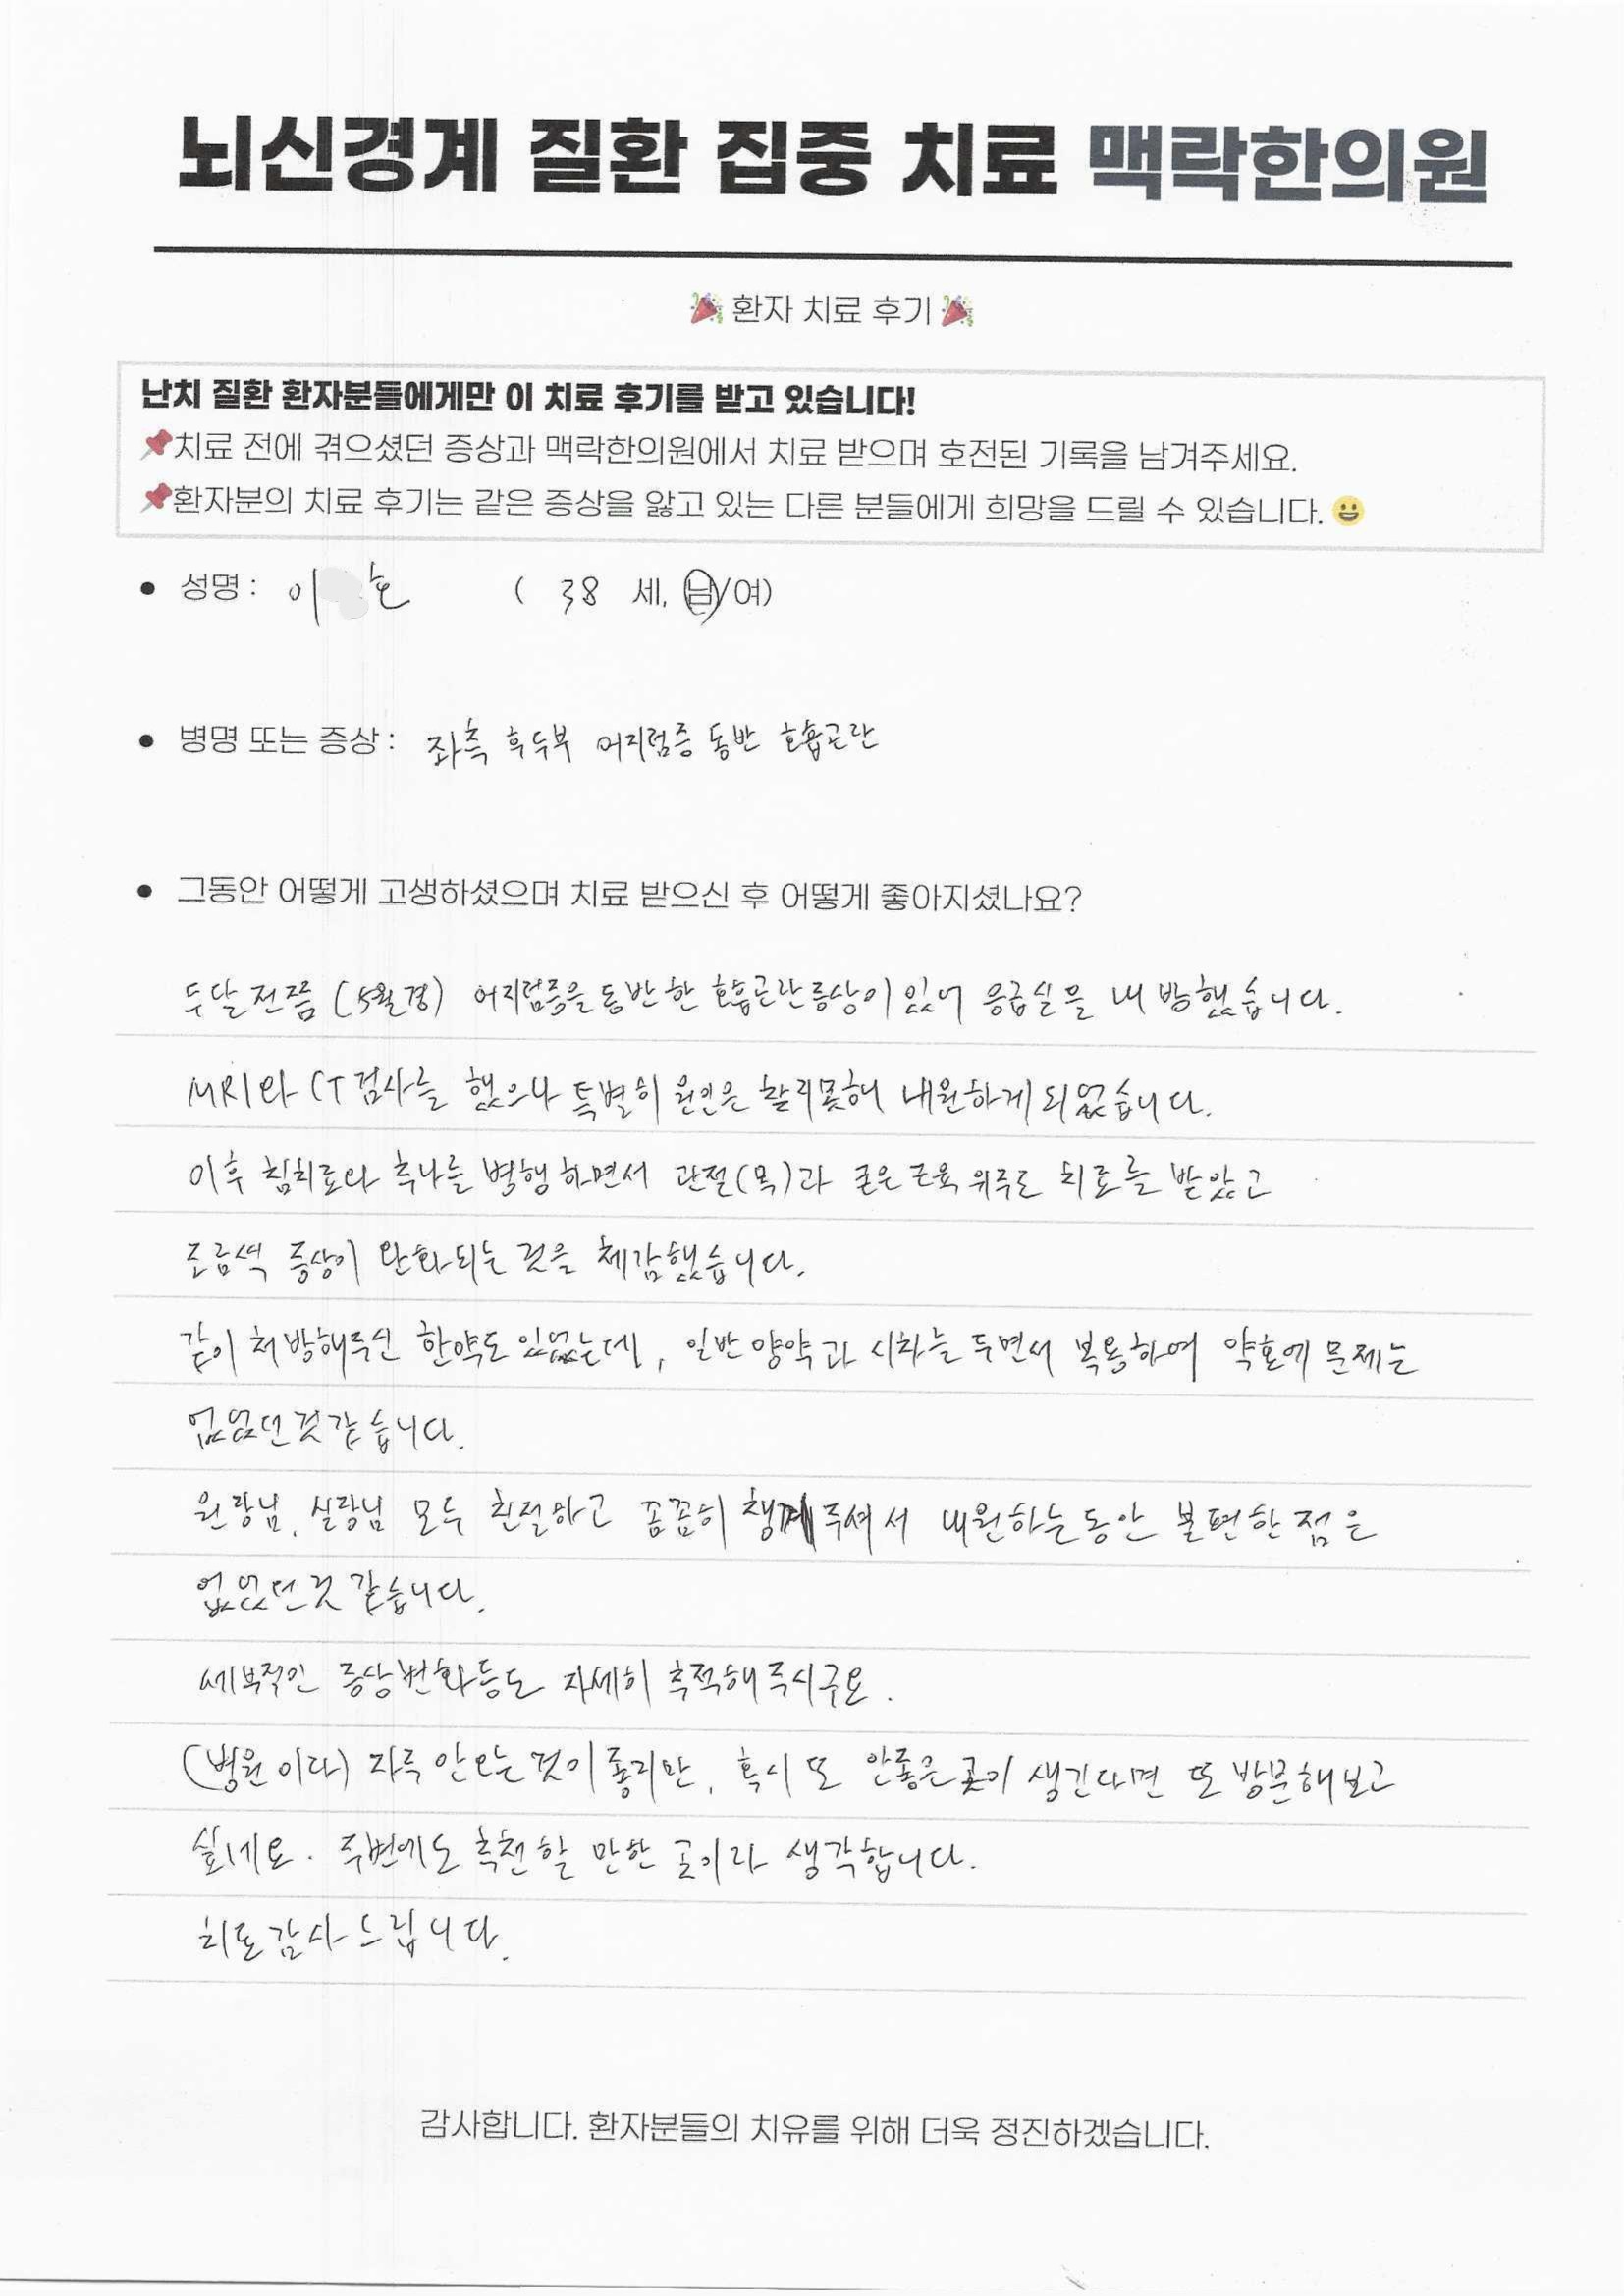 뇌신경계 질환 집중 치료 맥락한의원
🎉 환자 치료 후기 🎉
난치 질환 환자분들에게만 이 치료 후기를 받고 있습니다!
📌치료 전에 겪으셨던 증상과 맥락한의원에서 치료 받으며 호전된 기록을 남겨주세요.
📌환자분의 치료 후기는 같은 증상을 앓고 있는 다른 분들에게 희망을 드릴 수 있습니다. 😀
• 성명 : 이 호 ( 38 세, 남/여)
• 병명 또는 증상 : 좌측 후두부 어지럼증 동반 호흡곤란
• 그동안 어떻게 고생하셨으며 치료 받으신 후 어떻게 좋아지셨나요?
두달전쯤 (5월경) 어지럼증을 동반한 호흡곤란증상이 있어 응급실을 내방했습니다.
MRI와 CT검사를 했으나 특별히 원인은 찾지못해 내원하게 되었습니다.
이후 침치료와 추나를 병행하면서 관절(목)과 굳은 근육 위주로 치료를 받았고
조금씩 증상이 완화되는 것을 체감했습니다.
같이 처방해주신 한약도 있었는데, 일반 양약과 시차를 두면서 복용하여 약효에 문제는
없었던것같습니다.
원장님, 실장님 모두 친절하고 꼼꼼히 챙겨주셔서 내원하는동안 불편한 점은
없었던것 같습니다.
세부적인 증상변화등도 자세히 추적해주시구요.
(병원이다) 자주 안오는것이 좋지만, 혹시 또 안좋은곳이 생긴다면 또 방문해보고
싶네요. 주변에도 추천할 만한 곳이라 생각합니다.
치료감사드립니다.
감사합니다. 환자분들의 치유를 위해 더욱 정진하겠습니다.